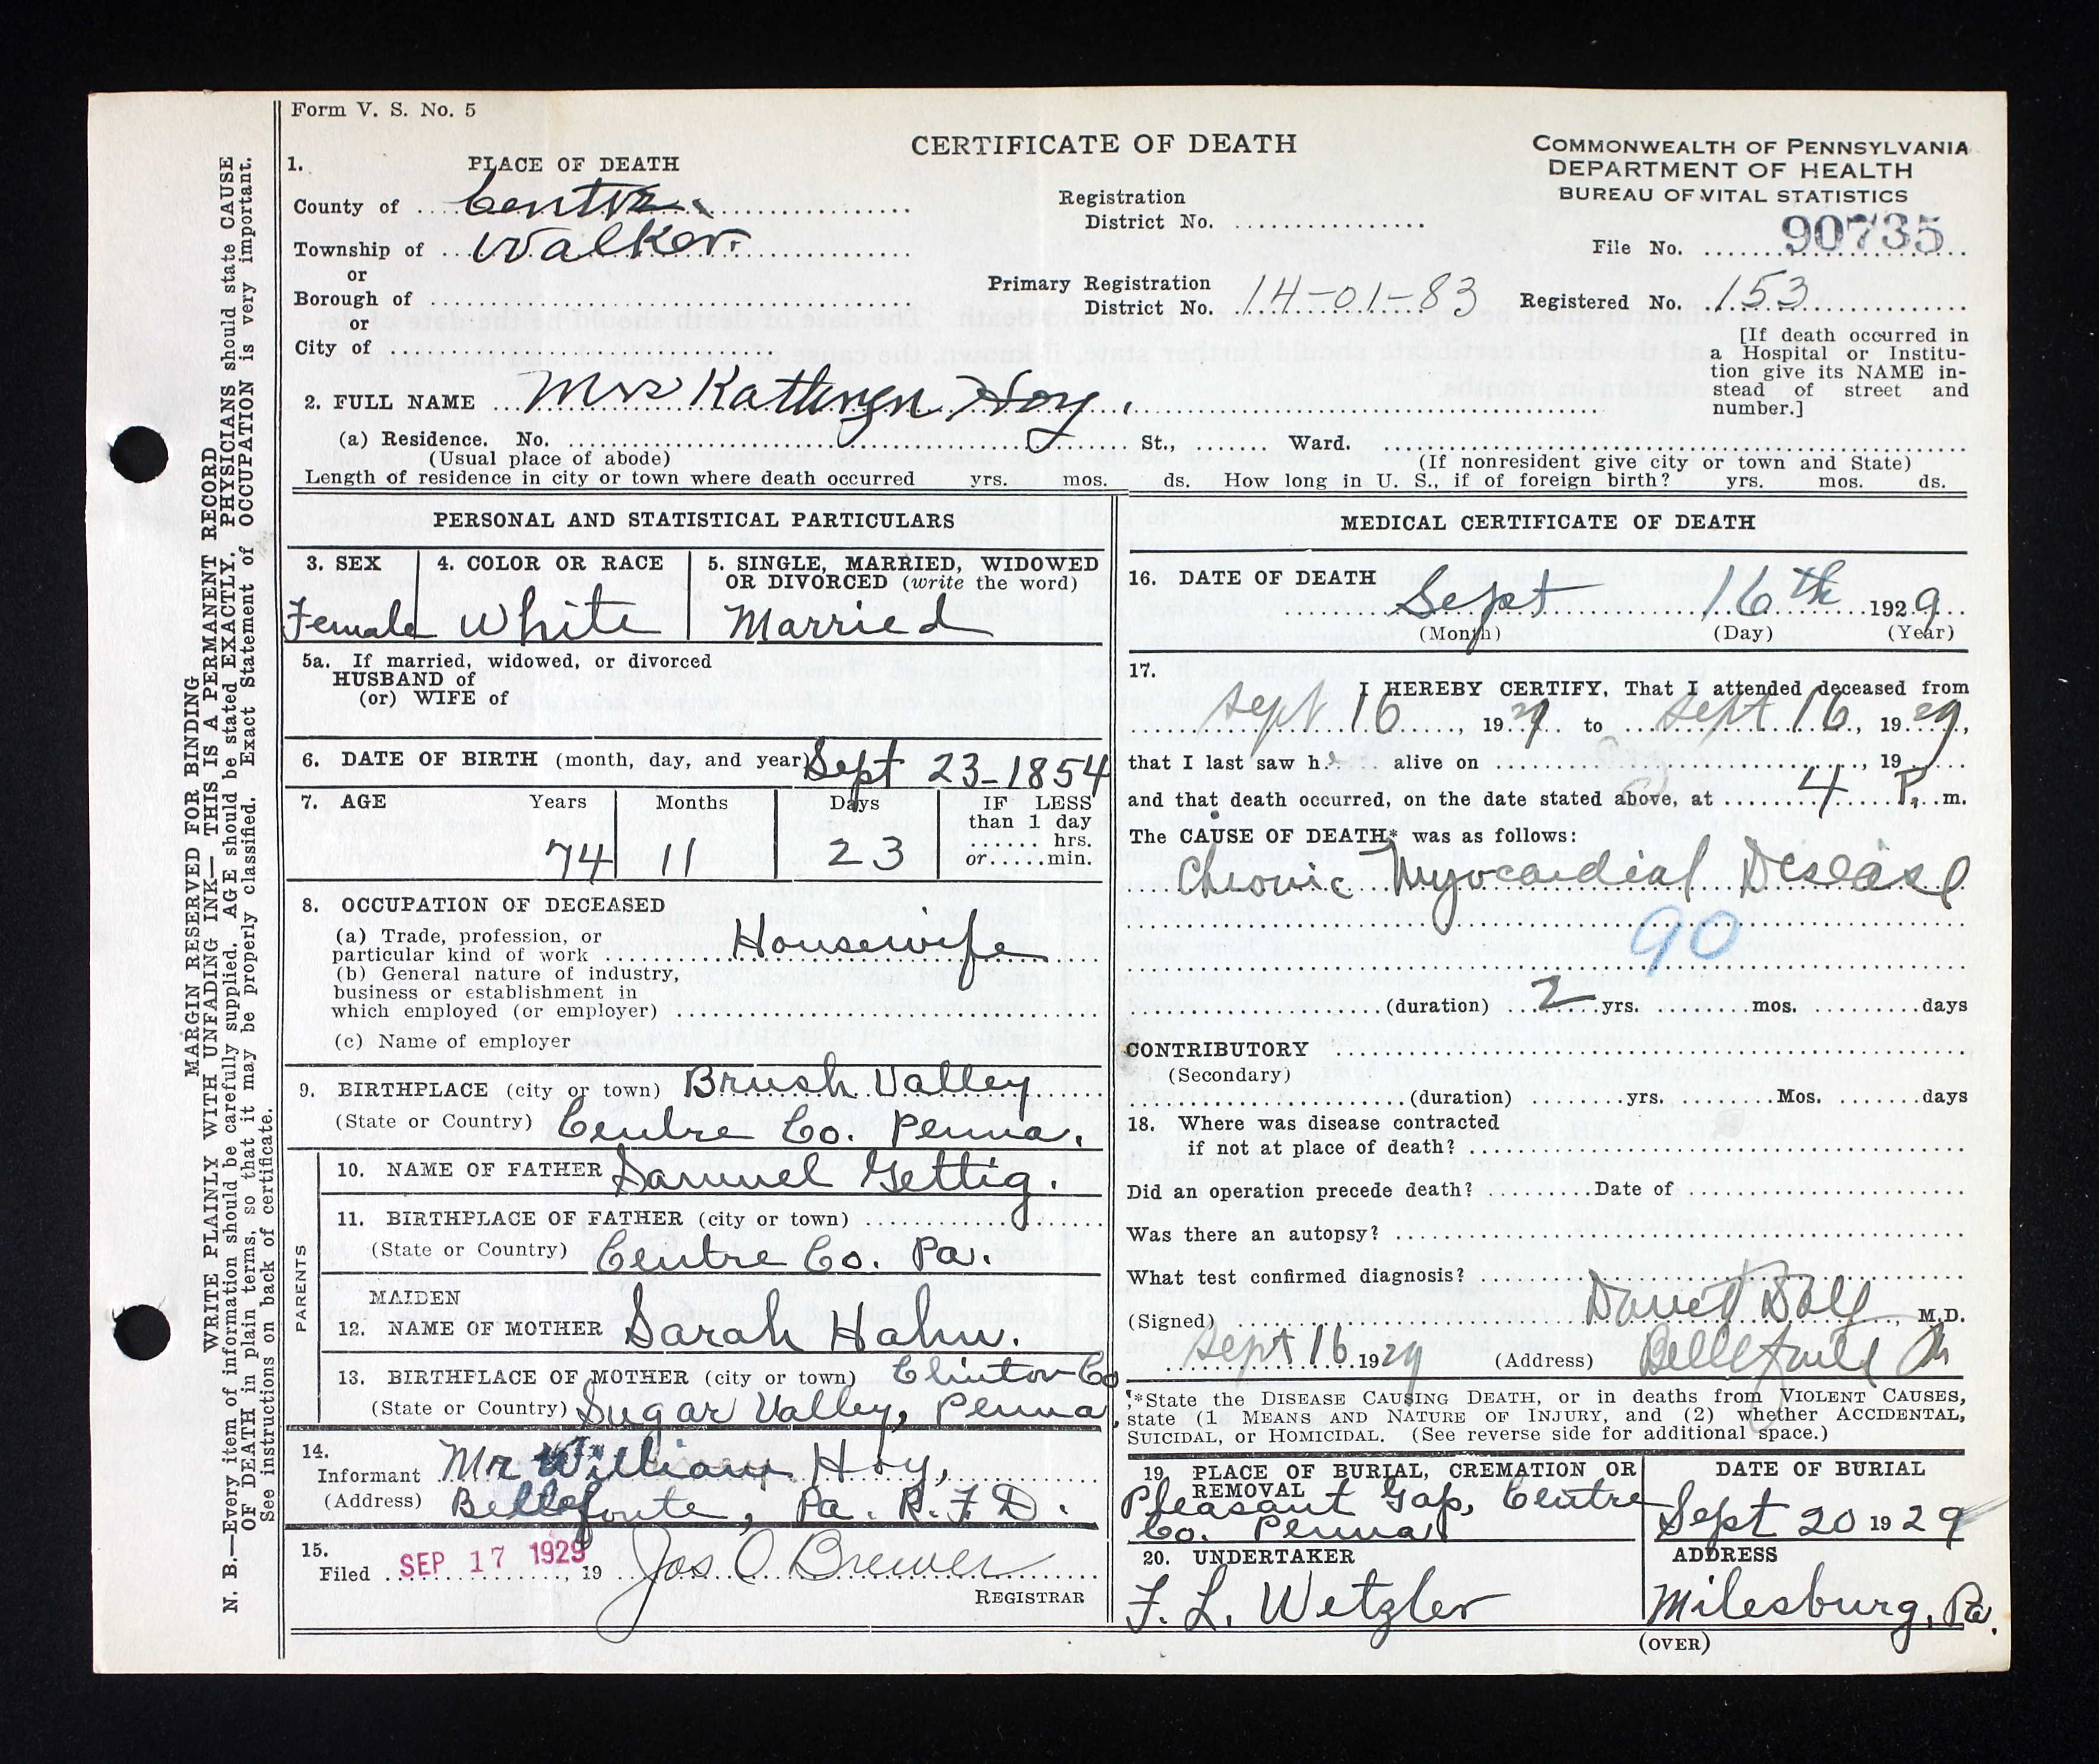 Form V. S. No. 5
CERTIFICATE OF DEATH
COMMONWEALTH OF PENNSYLVANIA
DEPARTMENT OF HEALTH
BUREAU OF VITAL STATISTICS
1. PLACE OF DEATH
County of Centre
Township of Walker
or
Borough of
or
City of
Registration
District No.
Primary Registration
District No. 14-01-83
File No. 90735
Registered No. 153
[If death occurred in
a Hospital or Institu-
tion give its NAME in-
stead of street and
number.]
2. FULL NAME Mrs Kathryn Hoy.
(a) Residence. No. St., Ward.
(Usual place of abode) (If nonresident give city or town and State)
Length of residence in city or town where death occurred yrs. mos. ds. How long in U. S., if of foreign birth? yrs. mos. ds.
PERSONAL AND STATISTICAL PARTICULARS
3. SEX 4. COLOR OR RACE 5. SINGLE, MARRIED, WIDOWED
OR DIVORCED (write the word)
Female White Married
5a. If married, widowed, or divorced
HUSBAND of
(or) WIFE of
6. DATE OF BIRTH (month, day, and year) Sept 23-1854
7. AGE Years Months Days IF LESS
than 1 day
hrs.
or min.
74 11 23
8. OCCUPATION OF DECEASED
(a) Trade, profession, or
particular kind of work Housewife
(b) General nature of industry,
business or establishment in
which employed (or employer)
(c) Name of employer
9. BIRTHPLACE (city or town) Brush Valley
(State or Country) Centre Co. Penna.
PARENTS
10. NAME OF FATHER Samuel Gettig.
11. BIRTHPLACE OF FATHER (city or town)
(State or Country) Centre Co. Pa.
MAIDEN
12. NAME OF MOTHER Sarah Hahn.
13. BIRTHPLACE OF MOTHER (city or town) Clinton Co
(State or Country) Sugar Valley, Penna
14.
Informant Mr William Hoy,
(Address) Bellefonte, Pa. R.F.D.
15.
Filed SEP 17 1929, 19 Jos O Brewer
REGISTRAR
MEDICAL CERTIFICATE OF DEATH
16. DATE OF DEATH
Sept 16th 1929
(Month) (Day) (Year)
17. I HEREBY CERTIFY, That I attended deceased from
Sept 16, 1929 to Sept 16, 1929,
that I last saw h alive on , 19
and that death occurred, on the date stated above, at 4 P. m.
The CAUSE OF DEATH* was as follows:
Chronic Myocardial Disease
90
(duration) 2 yrs. mos. days
CONTRIBUTORY
(Secondary)
(duration) yrs. Mos. days
18. Where was disease contracted
if not at place of death?
Did an operation precede death? Date of
Was there an autopsy?
What test confirmed diagnosis?
(Signed) , M.D.
Sept 16 1929 (Address) Bellefonte Pa
*State the DISEASE CAUSING DEATH, or in deaths from VIOLENT CAUSES,
state (1 MEANS AND NATURE OF INJURY, and (2) whether ACCIDENTAL,
SUICIDAL, or HOMICIDAL. (See reverse side for additional space.)
19 PLACE OF BURIAL, CREMATION OR
REMOVAL
Pleasant Gap, Centre
Co. Penna
DATE OF BURIAL
Sept 20 1929
20. UNDERTAKER
F. L. Wetzler
ADDRESS
Milesburg, Pa.
(OVER)
MARGIN RESERVED FOR BINDING
WRITE PLAINLY WITH UNFADING INK—THIS IS A PERMANENT RECORD
N. B.—Every item of information should be carefully supplied. AGE should be stated EXACTLY. PHYSICIANS should state CAUSE
OF DEATH in plain terms, so that it may be properly classified. Exact Statement of OCCUPATION is very important.
See instructions on back of certificate.